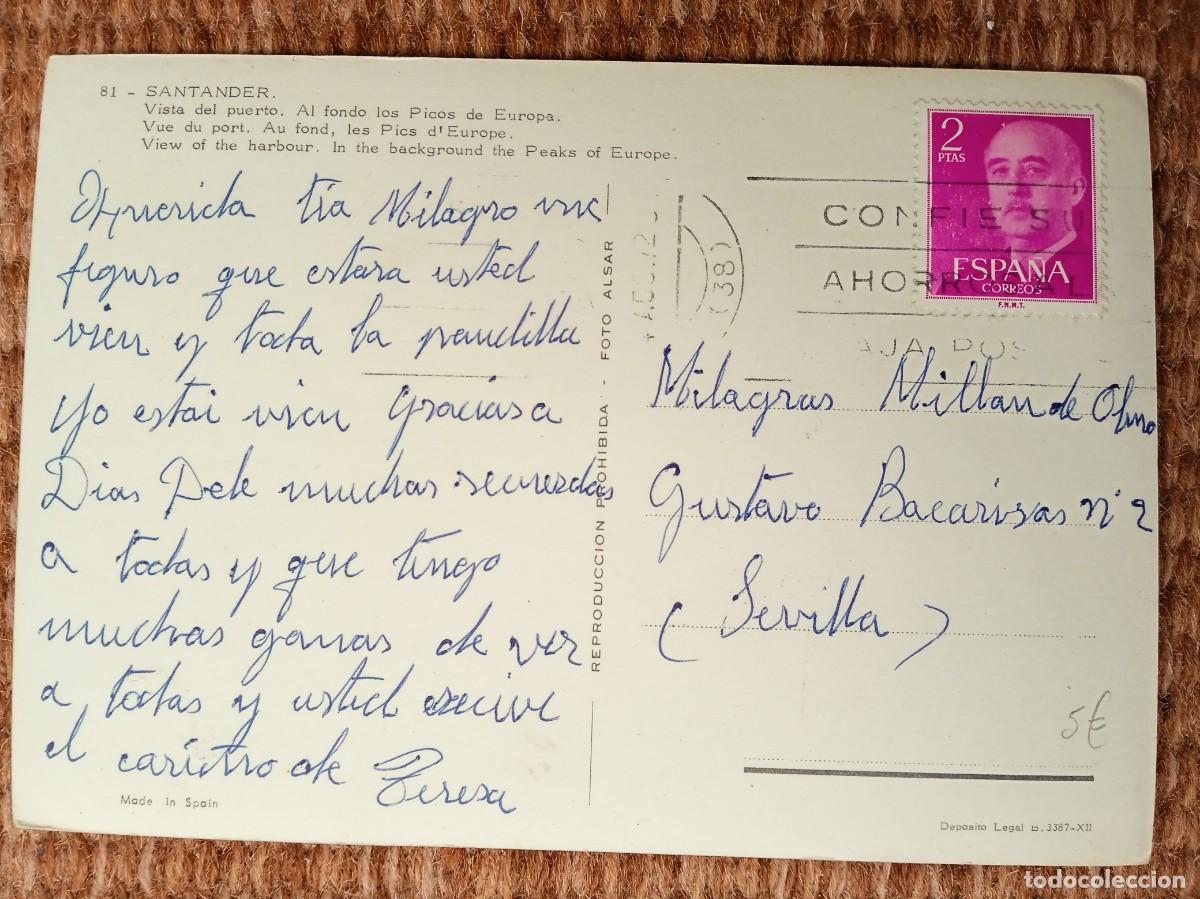 81 - SANTANDER.
Vista del puerto. Al fondo los Picos de Europa.
Vue du port. Au fond, les Pics d'Europe.
View of the harbour. In the background the Peaks of Europe.
querida tía Milagro me
figuro que estara usted
vien y toda la pandilla
Yo estoi vien Gracias a
Dios Dele muchos recuerdos
a todos y que tengo
muchas ganas de ver
a todos y usted recive
el carictro de Teresa
Made in Spain
REPRODUCCION PROHIBIDA - FOTO ALSAR
2
PTAS
ESPAÑA
CORREOS
F.N.M.T.
CONFIE SU
AHORRO AL
AJA POS
(38)
Milagros Millan de Olmo
Gustavo Bacarisas nº 2
(Sevilla)
5€
Deposito Legal B. 3387-XII
todocoleccion